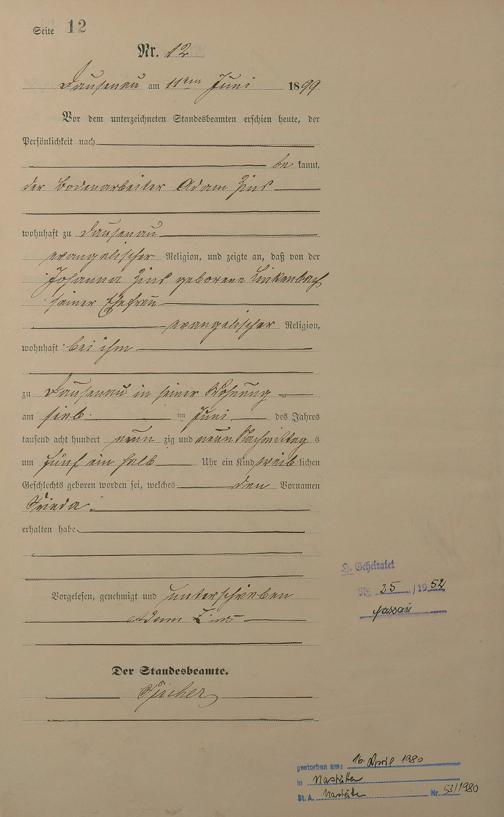 Seite 12
Nr. 12
Dausenau am 11ten Juni 1899
Vor dem unterzeichneten Standesbeamten erschien heute, der
Persönlichkeit nach
be kannt,
der Bodenarbeiter Adam Zins
wohnhaft zu Dausenau
evangelischer Religion, und zeigte an, daß von der
Johanna Zins geborene Linkenbach
seiner Ehefrau
evangelischer Religion,
wohnhaft bei ihm
zu Dausenau in seiner Wohnung
am sieb im Juni des Jahres
tausend acht hundert neun zig und neun Nachmittag s
um fünf ein halb Uhr ein Kind weib lichen
Geschlechts geboren worden sei, welches den Vornamen
Frieda
erhalten habe.
Vorgelesen, genehmigt und unterschrieben
Adam Zins
Der Standesbeamte.
Geheiratet
Nr. 25 /1952
Nassau
gestorben am: 16. April 1980
in Nastätten
St.A. Nastätten Nr. 53/1980